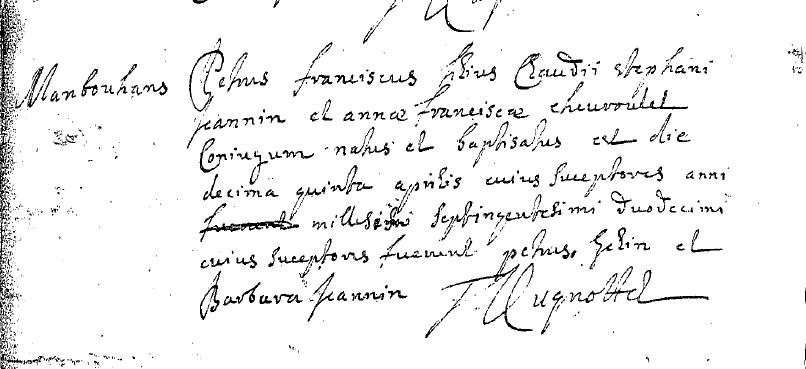 Manbouhans Petrus franciscus filius Claudii stephani
Jeannin et annæ franciscæ chevroulet
Coniugum natus et baptisatus est die
decima quinta aprilis cuius susceptores anni
fuerunt millesimi septingentesimi duodecimi
cuius susceptores fuerunt petrus et
Barbara Jeannin